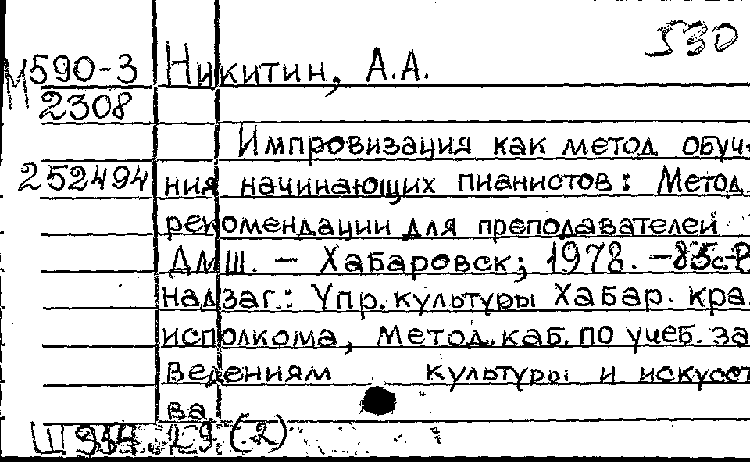 530
М590-3 Никитин, А.А.
2308
Импровизация как метод обуч-
252494 ния начинающих пианистов: Метод.
рекомендации для преподавателей
ДМШ. – Хабаровск; 1978. – 85с-В
надзаг.: Упр. культуры Хабар. кра
исполкома, Метод. каб. по учеб. за
ведениям культуры и искусст
ва